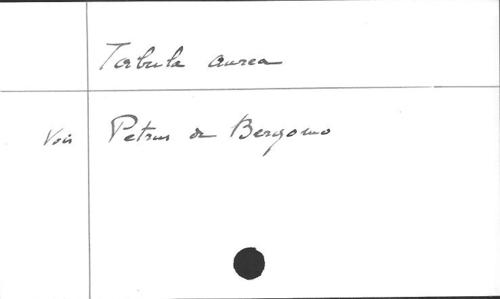 Tabula aurea
Voir Petrus de Bergomo